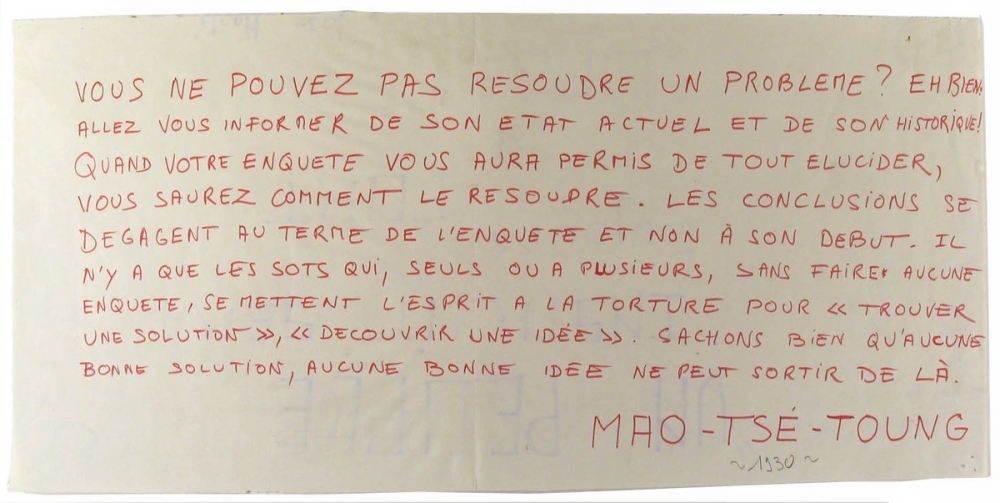 VOUS NE POUVEZ PAS RESOUDRE UN PROBLEME ? EH BIEN.
ALLEZ VOUS INFORMER DE SON ETAT ACTUEL ET DE SON HISTORIQUE!
QUAND VOTRE ENQUETE VOUS AURA PERMIS DE TOUT ELUCIDER,
VOUS SAUREZ COMMENT LE RESOUDRE. LES CONCLUSIONS SE
DEGAGENT AU TERME DE L'ENQUETE ET NON À SON DEBUT. IL
N'Y A QUE LES SOTS QUI, SEULS OU A PLUSIEURS, SANS FAIRE AUCUNE
ENQUETE, SE METTENT L'ESPRIT A LA TORTURE POUR « TROUVER
UNE SOLUTION », « DECOUVRIR UNE IDÉE ». SACHONS BIEN QU'AUCUNE
BONNE SOLUTION, AUCUNE BONNE IDEE NE PEUT SORTIR DE LÀ.
MAO-TSÉ-TOUNG
~1930~